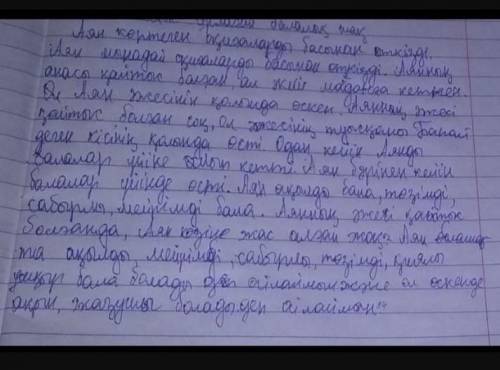 балалық шақ
Аян көртеген оқиғаларды басынан өткізді.
Аян мынадай оқиғаларды басынан өткізді. Аянның
анасы қайтыс болған, ал әкесі майданға кеткен.
Аян әжесінің қолында өскен. Аянның әжесі
қайтыс болған соң, ол әжесінің туысқаны
деген кісінің қолында өсті. Одан кейін Аянды
балалар үйіне алып кетті. Аян бұрінен кейін
балалар үйінде өсті. Аян ақылды бала, төзімді,
сабырлы, мейірімді бала. Аянның әжесі қайтыс
болғанда, Аян көзіне жас алған жоқ. Аян болашақ
та ақылды, мейірімді, сабырлы, төзімді, қиялы
ұшқыр бала болады деп ойлаймын және ол өскенде
ақын, жазушы болады деп ойлаймын"